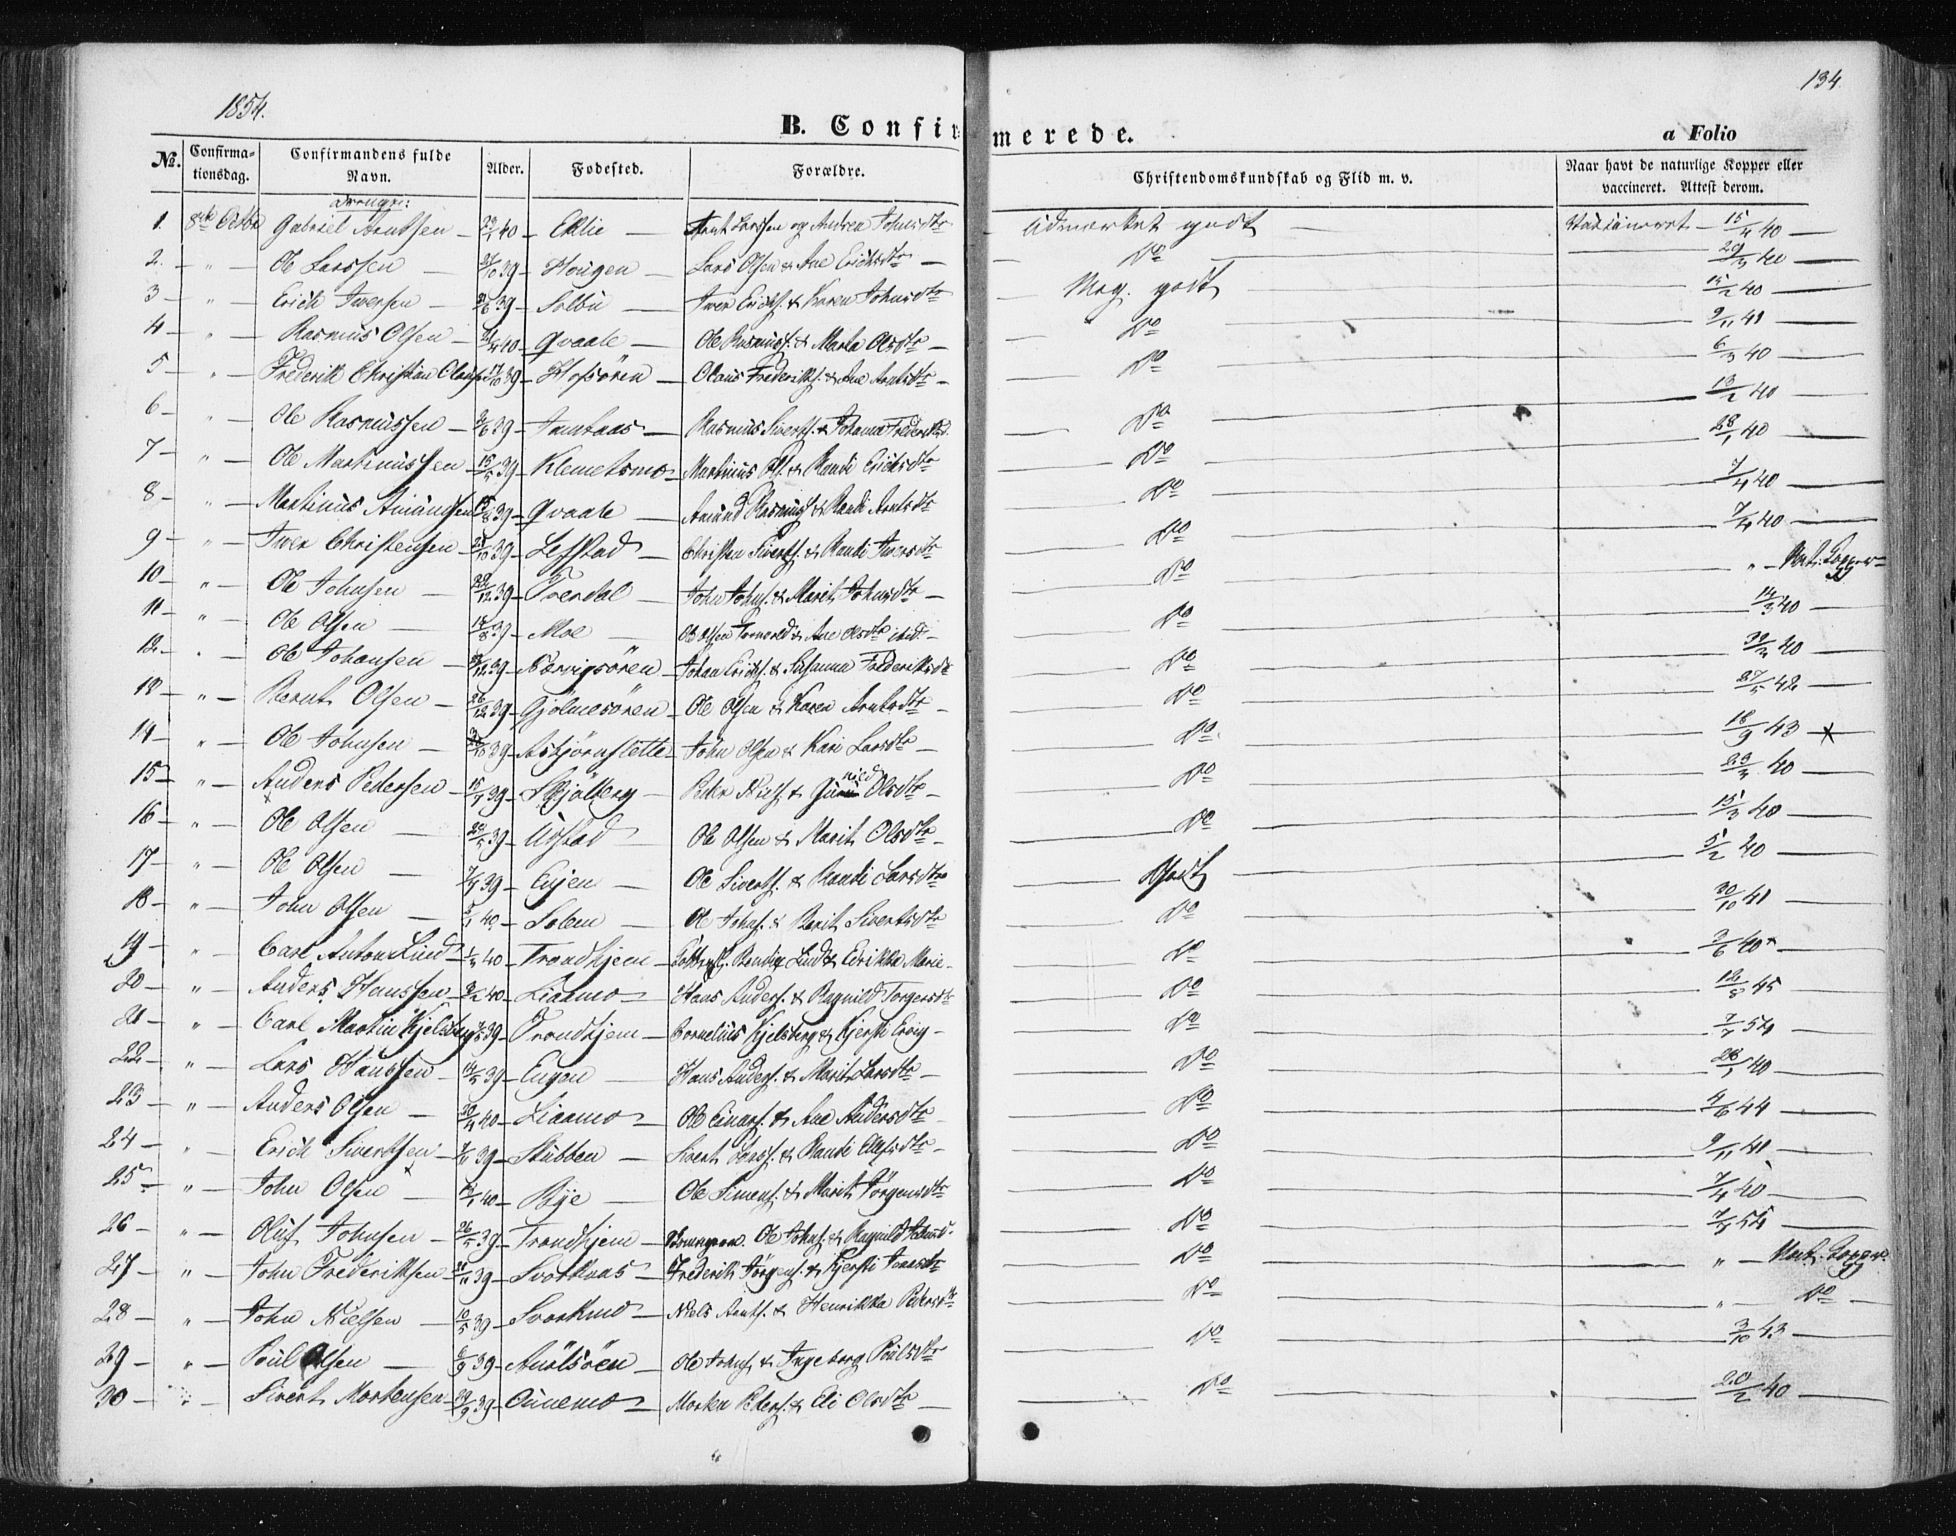 1854.
134
B. Confirmerede.
a Folio
No. Confirmationsdag. Confirmandens fulde Navn. Alder. Fødested. Forældre. Christendomskundskab og Flid m. v. Naar havt de naturlige Kopper eller vaccineret. Attest derom.
Drenge:
1. 8de Octbr Gabriel Arntsen 40 Eklie Arnt Larssen og Andrea Johnsdtr Udmærket godt Vaccineret 15/4 40
2. " Ole Larssen 27/10 39 Haugen Lars Olsen & Ane Erichsdtr Do 40
3 " Erich Iversen 39 Solbu Iver Erichs. & Karen Johnsdtr Meg. godt 15/2 40
4 " Rasmus Olsen 40 Qvaale Ole Rasmuss. & Marta Olsdtr Do 9/11 41
5 " Frederik Christian Olaus. 39 Hofsören Olaus Frederiks. & Ane Arntsdtr Do 6/3 40
6 " Ole Rasmussen 39 Rasmus Siverts. & Johanna Frederiksd. Do 13/2 40
7 " Ole Martinussen 39 Klemetsmo Martinus Ols. & Randi Erichsdtr Do 28/1 40
8 " Martinus Amundsen 39 Qvaale Amund Rasmuss. & Randi Arntsdtr Do 7/4 40
9 " Iver Christensen 39 Lefstad Christen Siverts. & Randi Iversdtr Do 7/4 40
10 " Ole Johnsen 39 Tverdal John Johns. & Marit Johnsdtr Do " Nat. Kopper
11 " Ole Olsen 39 Moe Ole Olsen & Ane Olsdtr ibid. Do 14/3 40
12 " Ole Johansen 39 Norvigsören Johan Erichs. & Susanna Frederiksdtr Do 40
13 " Bernt Olsen 26/12 39 Gjølmesören Ole Olsen & Karen Arntsdtr Do 27/5 42
14 " Ole Johnsen 39 Asbjørnslette John Olsen & Kari Larsdtr Do 18/9 43 x
15 " Anders Pedersen 39 Skjølberg Peder Niels. & Gunild Olsdtr Do 40
16 " Ole Olsen 39 Ustad Ole Olsen & Marit Olsdtr Do 15/3 40
17 " Ole Olsen 39 Evjen Ole Siverts. & Randi Larsdtr Godt 5/2 40
18 " John Olsen 40 Solem Ole Johns. & Berit Sivertsdtr Do 30/10 41
19 " Carl Anton Lund 40 Trondhjem Lund & Edrikka Marie Do 3/6 40 x
20 " Anders Hanssen 40 Liaamo Hans Anders. & Ragnild Torgersdtr Do 12/8 45
21 " Carl Martin Kjelsberg 39 Trondhjem Cornelius Kjelsberg & Kjersti Do 7/7 54
22 " Lars Hanssen 39 Eugen Hans Anders. & Marit Larsdtr Do 28/1 40
23 " Anders Olsen 40 Liaamo Ole Einars. & Ane Andersdtr Do 4/6 44
24 " Erich Sivertsen 39 Stubben Sivert Larss. & Randi Ellefsdtr Do 9/11 41
25 " John Olsen 40 Bye Ole Simens. & Marit Jörgensdtr Do 7/4 40
26 " Oluf Johnsen 26/5 39 Trondhjem Ole Johns. & Ragnild Do 54
27 " John Frederiksen 39 Svorkaas Frederik Jörgens. & Kjersti Do " Nat. Kopper
28 " John Nielsen 10/5 39 Svorkmo Niels Arnts. & Henrikka Pedersdtr Do " Do
29 " Poul Olsen 39 Ole Johns. & Ingeborg Poulsdtr Do 3/10 43
30 " Sivert Mortensen 39 Morten Peders. & Eli Olsdtr Do 20/2 40